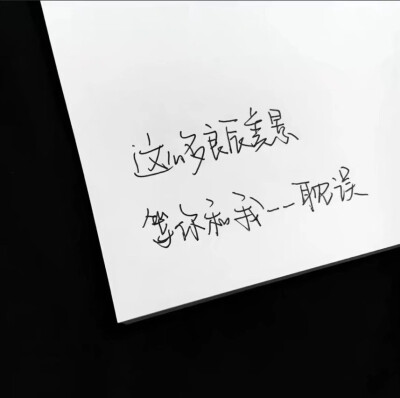 这么多良辰美景
等你和我一一耽误